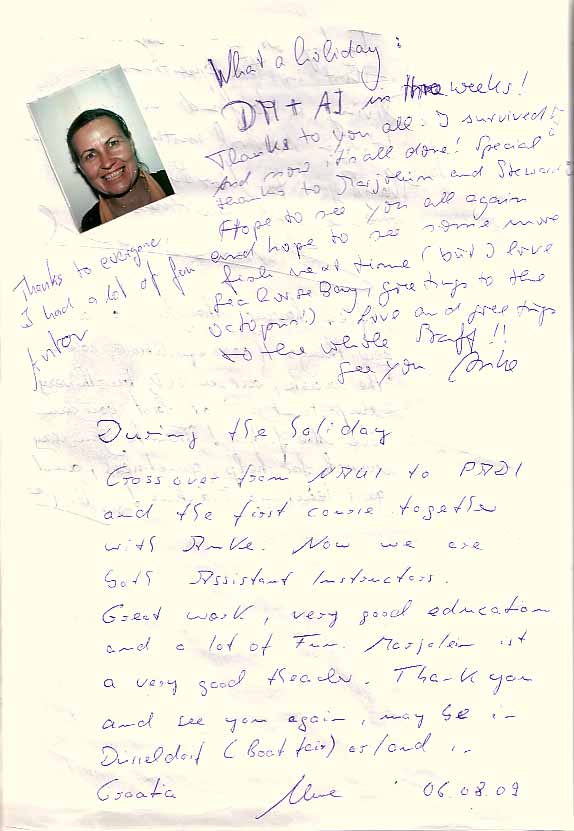 What a holiday:
DM + AI in three weeks!
Thanks to you all. I survived
and now it's all done! Special
thanks to Marjolein and Steward
Hope to see you all again
and hope to see some more
fish next time (but I love
Sea horse Bay, greetings to the
octopus!). Love and greetings
to the whole Staff!!
See you Anke
Thanks to everyone
I had a lot of fun
During the holiday
Cross over from NAUI to PADI
and the first course together
with Anke. Now we are
both Assistant Instructors.
Great work, very good education
and a lot of Fun. Marjolein ist
a very good theacher. Thank you
and see you again, may be in
Düsseldorf (Boat fair) or/and in
Croatia 06.08.09